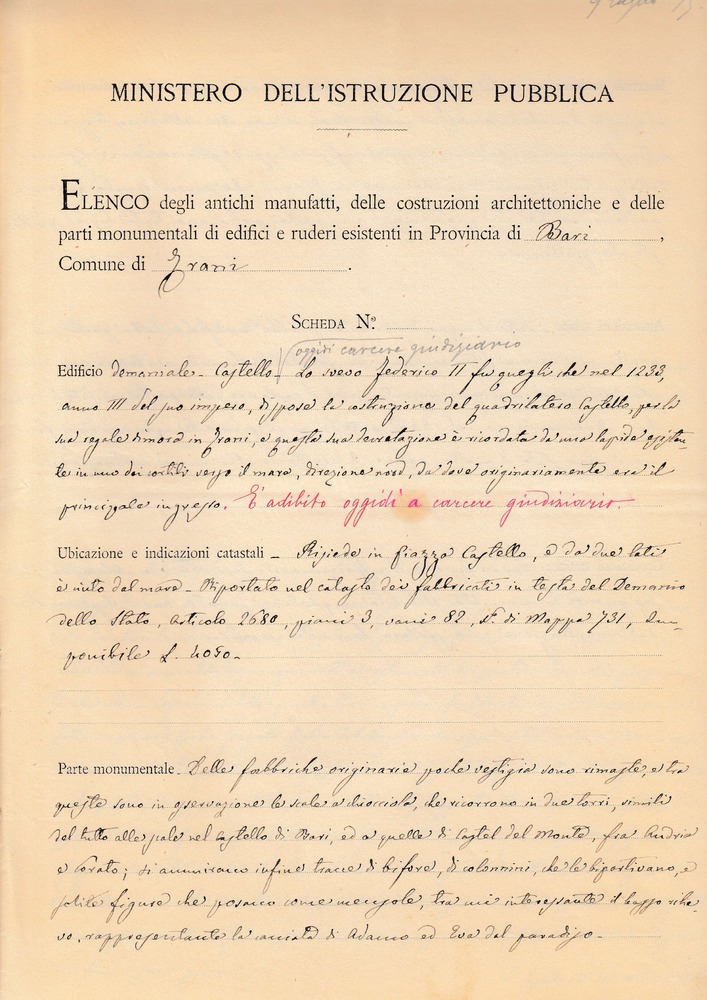 MINISTERO DELL'ISTRUZIONE PUBBLICA
ELENCO degli antichi manufatti, delle costruzioni architettoniche e delle
parti monumentali di edifici e ruderi esistenti in Provincia di Bari,
Comune di Trani.
SCHEDA N.º
oggidì carcere giudiziario
Edificio demaniale - Castello - Lo svevo Federico II fu quegli che nel 1233,
anno III del suo impero, dispose la costruzione del quadrilatero Castello, per la
sua regale dimora in Trani, e questa sua decretazione è ricordata da una lapide esisten-
te in uno dei cortili verso il mare, direzione nord, da dove originariamente era il
principale ingresso. È adibito oggidì a carcere giudiziario.
Ubicazione e indicazioni catastali - Risiede in piazza Castello, e da due lati
è cinto dal mare - Riportato nel catasto dei fabbricati in testa del Demanio
dello Stato, articolo 2680, piani 3, vani 82, N. di Mappa 731, Im-
ponibile L. 4050 -
Parte monumentale - Delle fabbriche originarie poche vestigia sono rimaste, e tra
queste sono in osservazione le scale a chiocciola, che ricorrono in due torri, simili
del tutto alle scale nel castello di Bari, ed a quelle di Castel del Monte, fra Andria
e Corato; si ammirano infine tracce di bifore, di colonnini, che le bipartivano, e
solite figure che posano come mensole, tra cui interessante il basso rilie-
vo, rappresentante la cacciata di Adamo ed Eva dal paradiso -